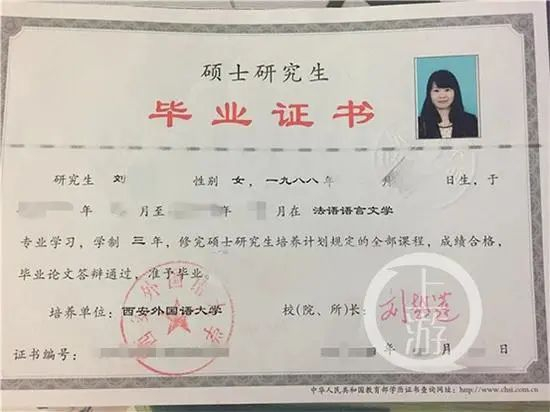 硕士研究生
毕业证书
研究生 刘 性别 女，一九八八年 月 日生，于
年 月至 年 月在 法语语言文学
专业学习，学制 三 年，修完硕士研究生培养计划规定的全部课程，成绩合格，
毕业论文答辩通过，准予毕业。
培养单位：西安外国语大学 校(院、所)长：
证书编号： 年 月 日
上游
中华人民共和国教育部学历证书查询网址：http://www.chsi.com.cn